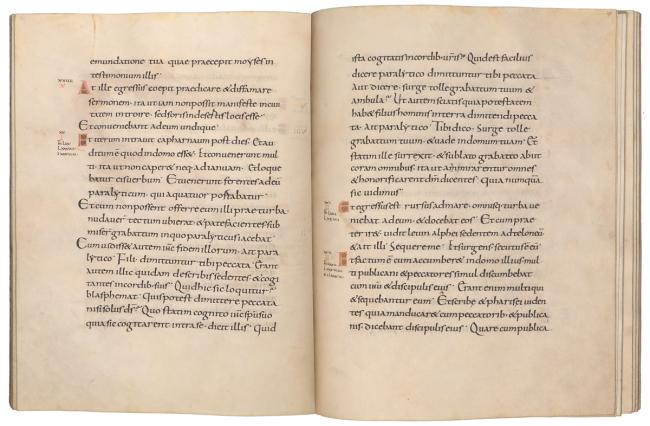 emundatione tua quae praecepit moyses in
testimonium illis
At ille egressus coepit praedicare & diffamare
sermonem · ita ut iam non possit manifeste in ciui
tatem introire · sed foris in desertis locis esse ·
Et conuenibant ad eum undique
Et iterum intrauit capharnaum post dies · Et au
ditum ē quod in domo ess& · Et conuenerunt mul
ti · ita ut non caper& neq· ad ianuam · Et loque
batur eis uerbum · Et uenerunt ferentes ad eū
paralyticum · qui a quattuor portabatur ·
Et cum non possent offerre eum illi prae turba
nudauer tectum ubi erat · & patefacientes sub
miser grabattum in quo paralyticus iacebat
Cum uidiss& autem ihs fidem illorum · Ait para
lytico · Fili · dimittuntur tibi peccata · Erant
autem illic quidam de scribis sedentes · & cogi
tantes in cordib· suis · Quid hic sic loquitur
blasphemat · Quis potest dimittere peccata
nisi solus ds · Quo statim cognito ihs spu suo
quia sic cogitarent intra se · dicit illis · Quid
ista cogitatis in cordib· uris · Quid est facilius
dicere paralytico dimittuntur tibi peccata
Aut dicere · surge tolle grabattum tuum &
ambula · Ut autem sciatis quia potestatem
hab& filius hominis in terra dimittendi pecca
ta · Ait paralytico · Tibi dico · Surge tolle
grabattum tuum · & uade in domum tuam · Et
statim ille surrexit · & sublato grabatto abiit
coram omnibus · ita ut admirarentur omnes
& honorificarent dm dicentes · Quia numquā
sic uidimus
Et egressus est rursus ad mare · omnisq· turba ue
niebat ad eum · & docebat eos · Et cum prae
teriret · uidit leuin alphei sedentem ad teloneū
& ait illi · Sequere me · Et surgens secutus ē eū
Et factum ē cum accumberet in domo illius mul
ti publicani & peccatores simul discumbebat
cum ihu & discipulis eius · Erant enim multi qui
& sequebantur eum · Et scribe & pharisei uiden
tes quia manducar& cum peccatorib· & publica
nis · dicebant discipulis eius · Quare cum publica